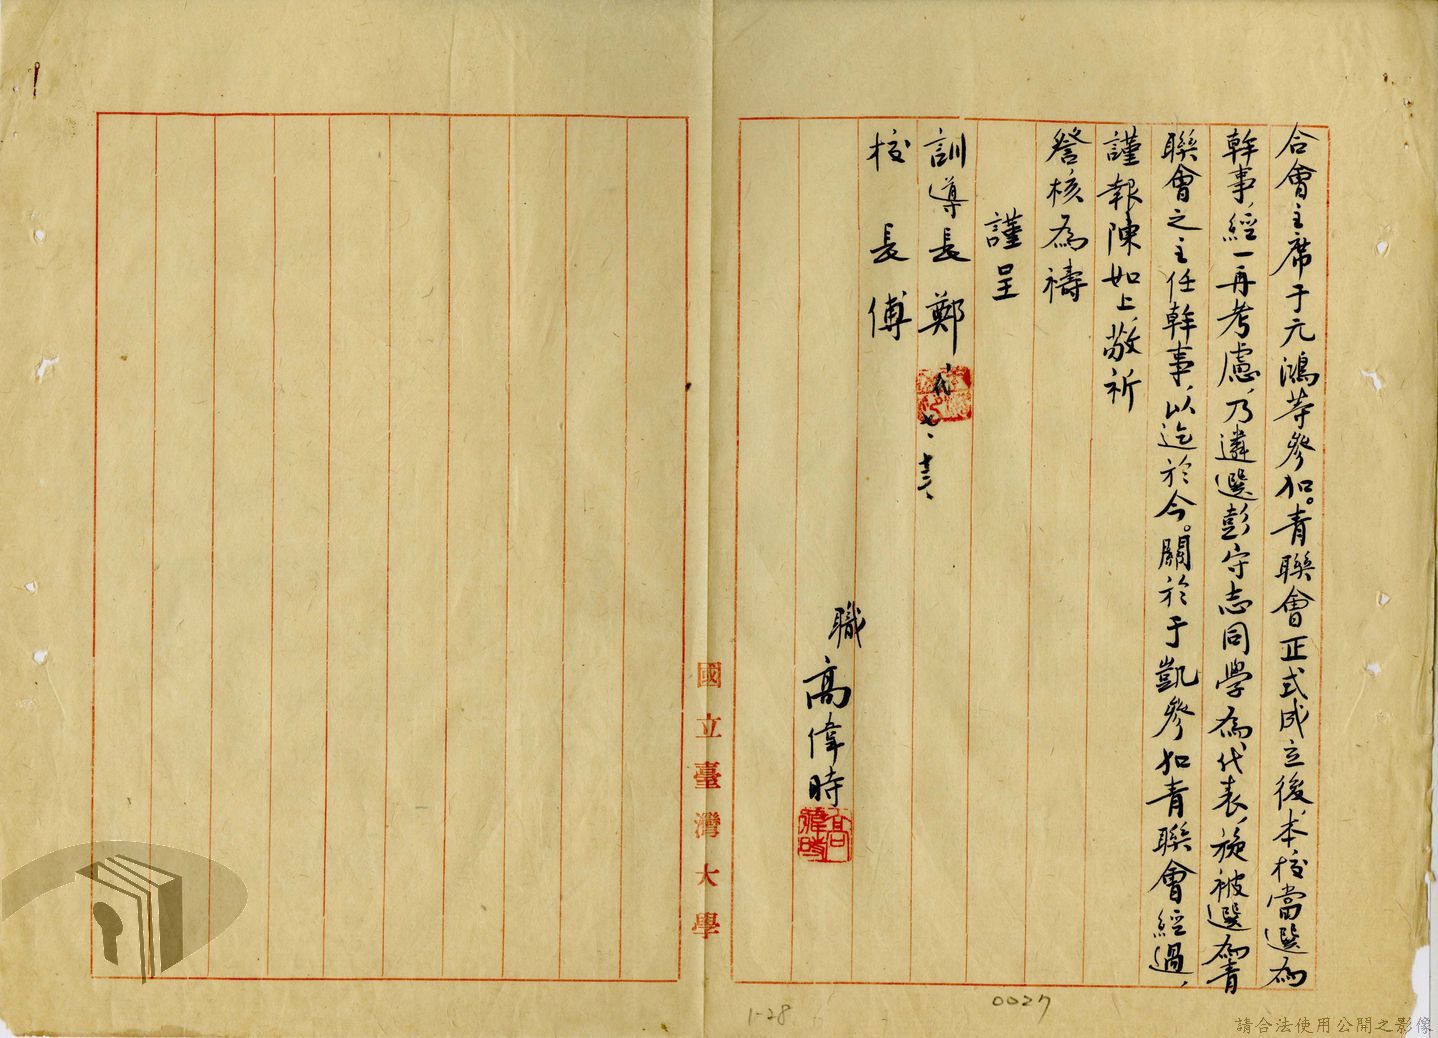 合會主席于元鴻等參加。青聯會正式成立後，本校當選為
幹事，經一再考慮，乃遴選彭守志同學為代表，旋被選為青
聯會之主任幹事，以迄於今。關於于凱參加青聯會經過，
謹報陳如上，敬祈
詧核為禱
謹呈
訓導長 鄭 代 七、十三、
校 長 傅
職 高偉時
高偉時
國立臺灣大學
0027
1-28
請合法使用公開之影像